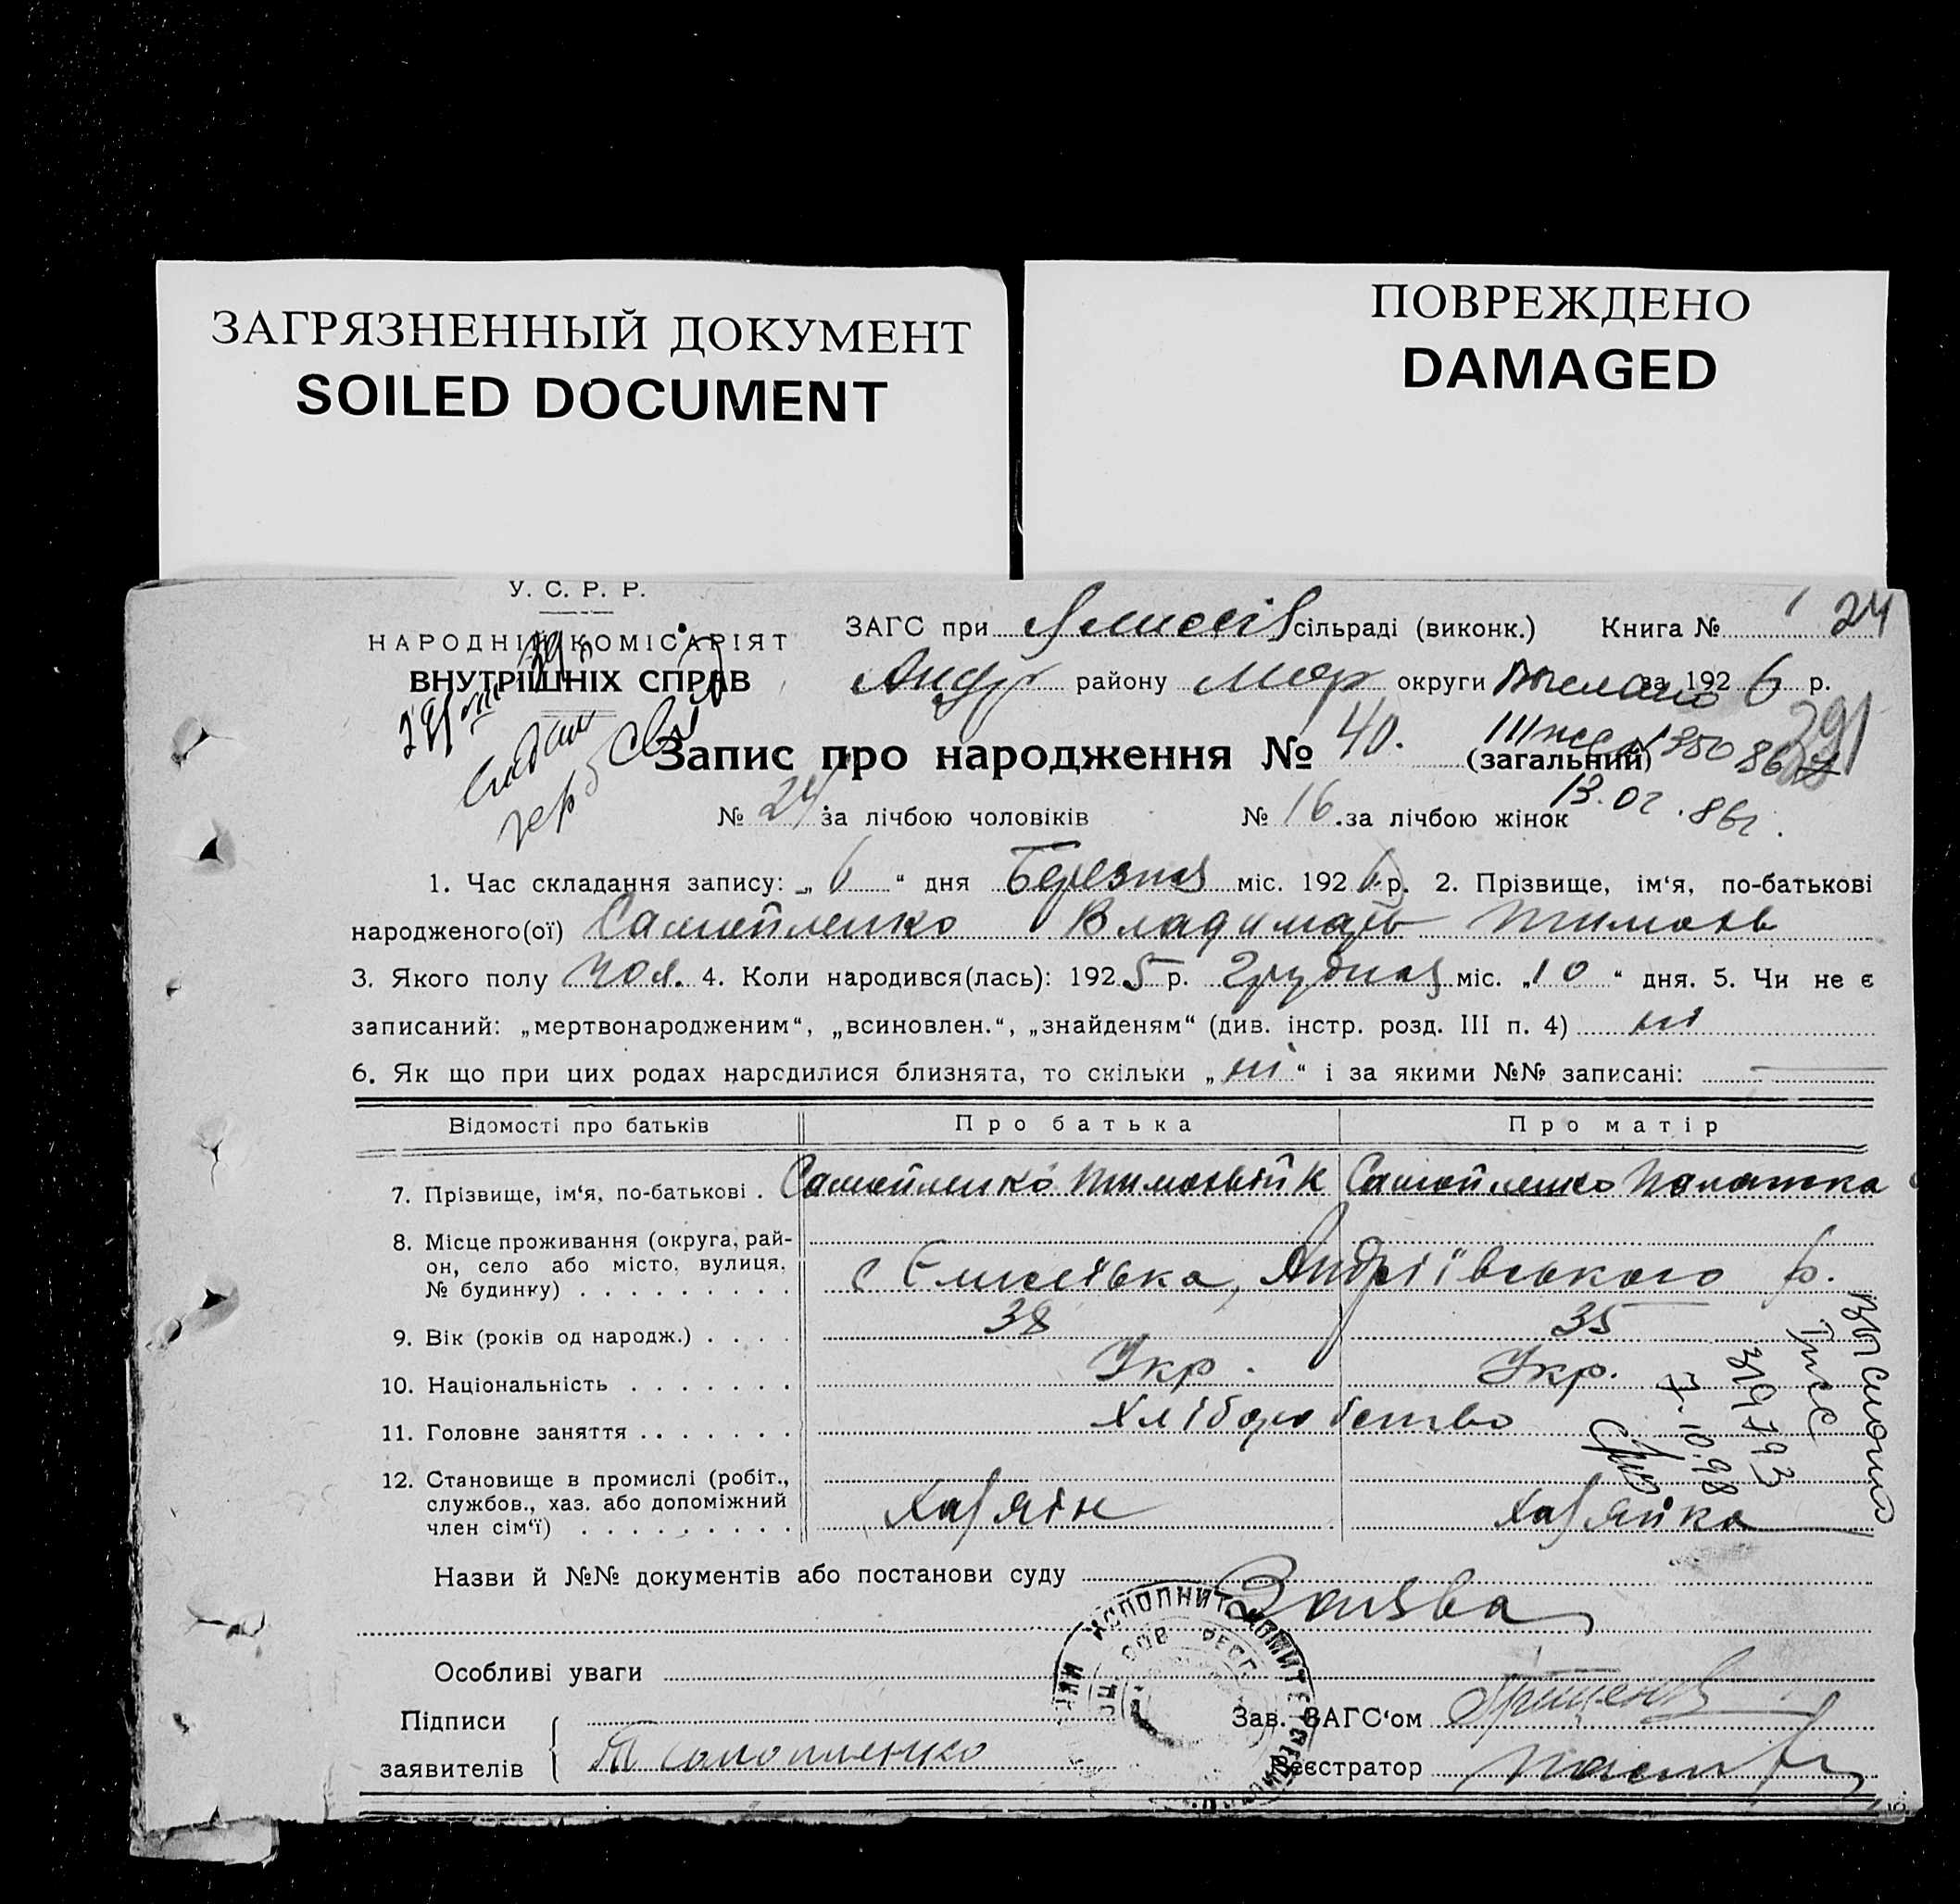 ЗАГРЯЗНЕННЫЙ ДОКУМЕНТ
SOILED DOCUMENT
ПОВРЕЖДЕНО
DAMAGED
У. С. Р. Р.
НАРОДНІЙ КОМІСАРІЯТ
ВНУТРІШНІХ СПРАВ
ЗАГС при сільраді (виконк.) Книга № 24
Андр району Мар округи за 1926 р.
Запис про народження № 40. (загальний)
№ 24 за лічбою чоловіків № 16 .за лічбою жінок
13.02.86г.
1. Час складання запису: „ 6 “ дня Березня міс. 1926 р. 2. Прізвище, ім‘я, по-батькові
народженого(ої) Самойленко Владимать Тимохв
3. Якого полу чол. 4. Коли народився(лась): 1925 р. Грудня міс. „10“ дня. 5. Чи не є
записаний: „мертвонародженим“, „всиновлен.“, „знайденям“ (див. інстр. розд. III п. 4) ні
6. Як що при цих родах народилися близнята, то скільки „ні“ і за якими №№ записані: —
Відомості про батьків Про батька Про матір
7. Прізвище, ім‘я, по-батькові . Самойленко Тимохвій К Самойленко Палажка
8. Місце проживання (округа, рай-
он, село або місто, вулиця,
№ будинку) . . . . . . . . . с Єлисеївка, Андріївського р.
9. Вік (років од народж.) . . . . 38 35
10. Національність . . . . . . . Укр. Укр.
11. Головне заняття . . . . . . . Хліборобство
12. Становище в промислі (робіт.,
службов., хаз. або допоміжний
член сім‘ї) . . . . . . . . . Хазяїн Хазяйка
7.10.98
Назви й №№ документів або постанови суду Заява
Особливі уваги
Підписи
заявителів Самойленко
Зав. ЗАГС‘ом
Реєстратор